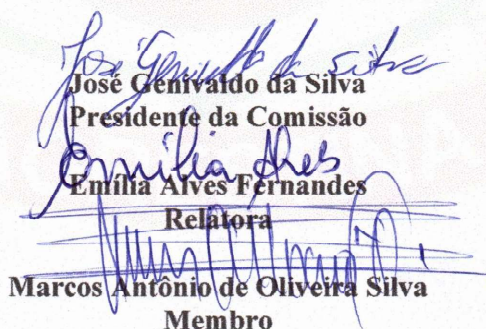 José Genivaldo da Silva
José Genivaldo da Silva
Presidente da Comissão
Emília Alves
Emília Alves Fernandes
Relatora
Marcos Antônio de Oliveira Silva
Membro